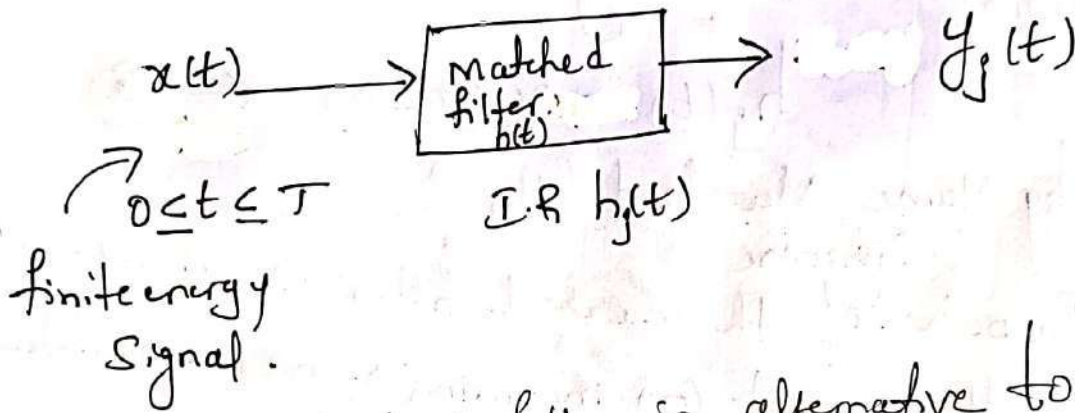 x(t)
matched
filter.
h(t)
y_j(t)
0 ≤ t ≤ T
I.R h_j(t)
finite energy
Signal.
alternative to